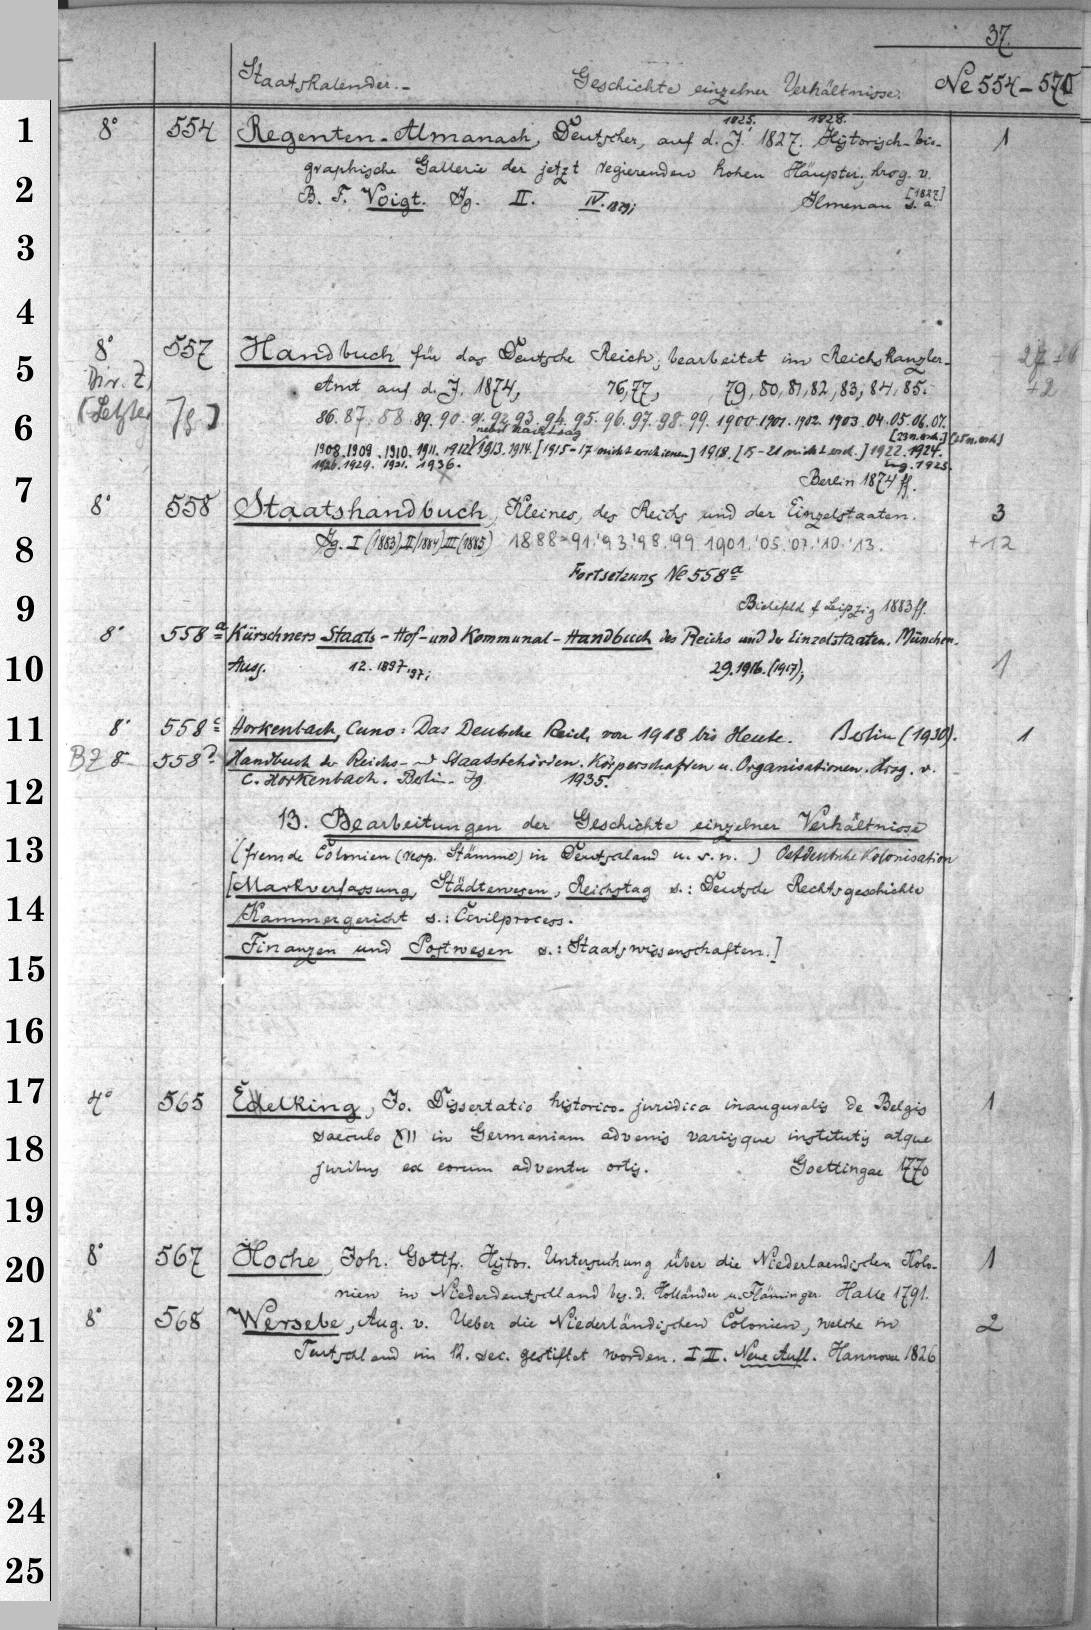 37.
Staatskalender.- Geschichte einzelner Verhältnisse. No 554-570
1825. 1828.
1 8° 554 Regenten-Almanach, Deutscher, auf d. J. 1827. Historisch-bio- 1
graphische Gallerie der jetzt regierenden hohen Häupter, hrsg. v.
2 B. F. Voigt. Jg. II. IV. 1829; Ilmenau s. a. [1827]
3
4
8° 557 Handbuch für das Deutsche Reich, bearbeitet im Reichskanzler-
5 Dir. Z. Amt auf d. J. 1874, 76,77, 79, 80, 81, 82, 83, 84, 85. +2
6 (Letzter Jg.) 86. 87. 88. 89. 90. 91. 92. 93. 94. 95. 96. 97. 98. 99. 1900. 1901. 1902. 1903. 04. 05. 06. 07.
nebst Nachtrag [23 n. ersch.] (25 n. ersch.)
1908. 1909. 1910. 1911. 1912. 1913. 1914. [1915-17 nicht erschienen] 1918. [15-21 nicht ersch.] 1922. 1924.
1926. 1929. 1931. 1936. 1925.
7 Berlin 1874 ff.
8° 558 Staatshandbuch, Kleines, des Reichs und der Einzelstaaten. 3
8 Jg. I (1883) II (1884) III (1885) 1888-91. '93. '98. '99. 1901. '05. '07. '10. '13. +12
Fortsetzung No 558a
9 Bielefeld & Leipzig 1883 ff.
8° 558a Kürschners Staats-Hof- und Kommunal-Handbuch des Reichs und der Einzelstaaten. München.
10 Ausg. 12. 1897 '97; 29. 1916. (1917); 1
11 8° 558c Horkenbach, Cuno: Das Deutsche Reich von 1918 bis Heute. Berlin (1930). 1
BZ 8° 558 Handbuch der Reichs- u. Staatsbehörden. Körperschaften u. Organisationen. Hrsg. v.
12 C. Horkenbach. Berlin. Jg. 1935.
13. Bearbeitungen der Geschichte einzelner Verhältnisse
13 (fremde Colonien (resp. Stämme) in Deutschland u. s. w.) Ostdeutsche Kolonisation
[Markverfassung, Städtewesen, Reichstag s.: Deutsche Rechtsgeschichte
14 Kammergericht s.: Civilprocess.
Finanzen und Postwesen s.: Staatswissenschaften.]
15
16
17 4° 565 Edelking, Jo. Dissertatio historico-juridica inauguralis de Belgis 1
saeculo XII in Germaniam advenis variisque institutis atque
18 juribus ex eorum adventu ortis. Goettingae 1770
19
20 8° 567 Hoche, Joh. Gottfr. Histor. Untersuchung über die Niederlaendischen Kolo- 1
nien in Niederdeutschland bes. d. Holländer u. Fläminger. Halle 1791.
21 8° 568 Wersebe, Aug. v. Ueber die Niederländischen Colonien, welche im 2
Teutschland im 12. sec. gestiftet worden. I II. Neue Aufl. Hannover 1826
22
23
24
25